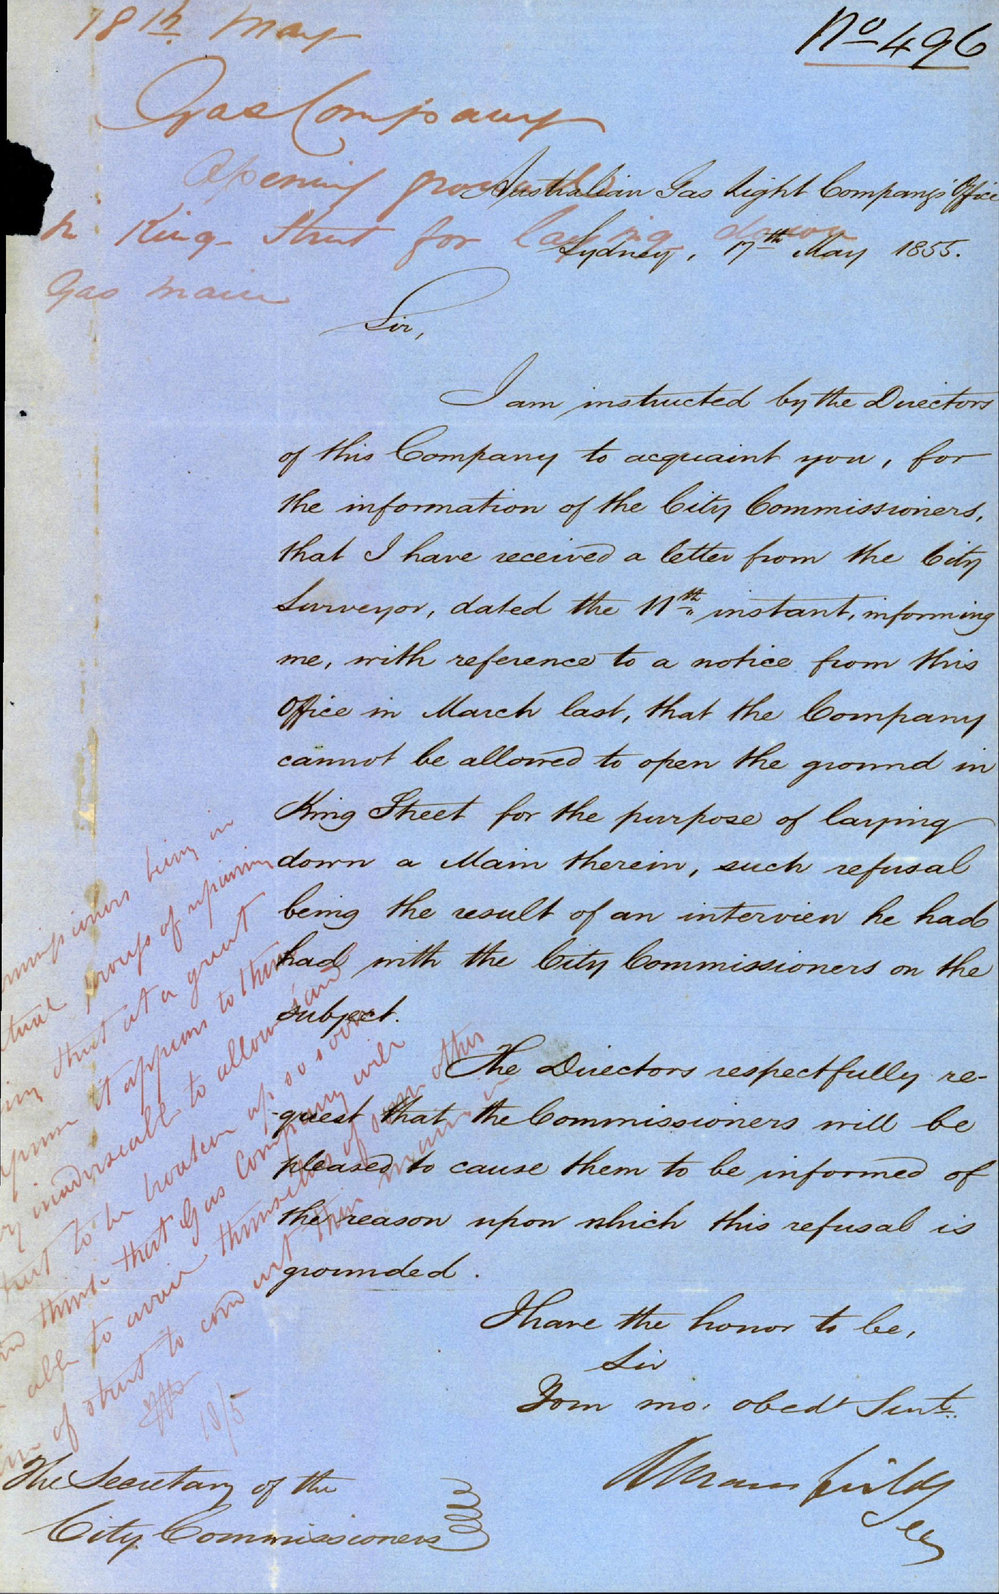 18th. May
No 496
Gas Company
Opening ground
in King Street for laying down
Gas main
Australian Gas Light Company's Office
Sydney, 17th May 1855.
Sir,
I am instructed by the Directors
of this Company to acquaint you, for
the information of the City Commissioners,
that I have received a letter from the City
Surveyor, dated the 11th. instant, informing
me, with reference to a notice from this
Office in March last, that the Company
cannot be allowed to open the ground in
King Street for the purpose of laying
down a Main therein, such refusal
being the result of an interview he had
had with the City Commissioners on the
subject.
The Directors respectfully re-
-quest that the Commissioners will be
pleased to cause them to be informed of
the reason upon which this refusal is
grounded.
I have the honor to be,
Sir
Your mo. obedt Servt.
Mansfield
Secy
The Secretary of the
City Commissioners
being in
of repairing
street at a great
it appears to them
inadvisable to allow
to be broken up so soon
think that Gas Company will
able to avail themselves of
of street to
18/5